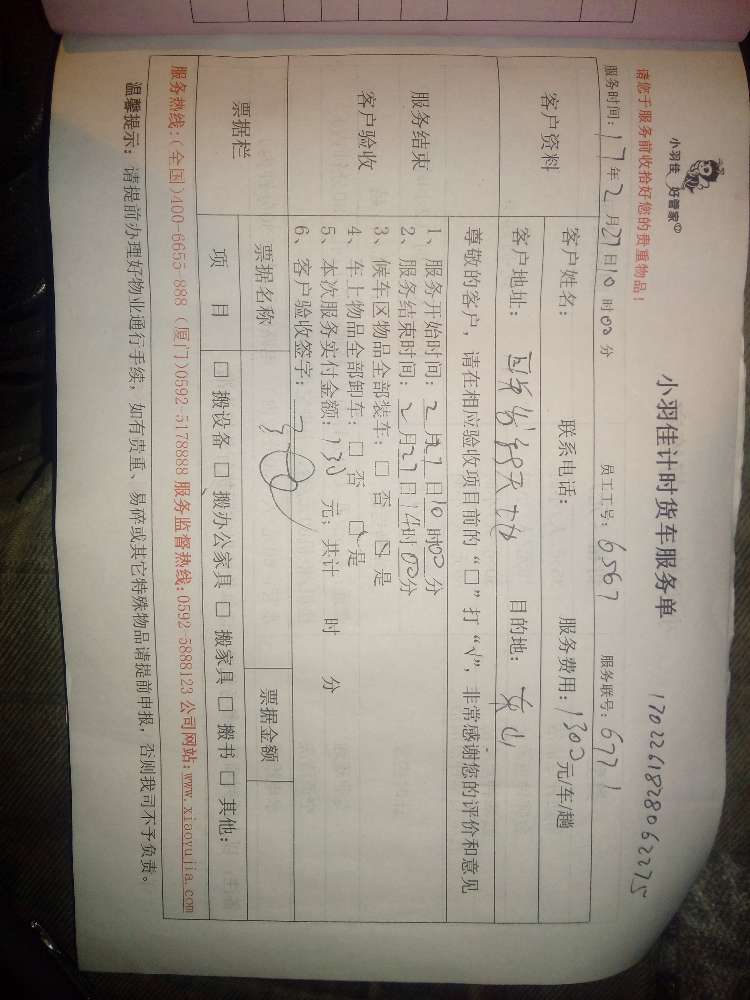 小羽佳 好管家
小羽佳计时货车服务单
1702261828062275
请您于服务前收拾好您的贵重物品！
服务时间：17年2月27日10时00分 员工工号：6567 服务联号：6771
客户资料
客户姓名： 联系电话： 服务费用：1300元/车/趟
客户地址： 目的地：东山
尊敬的客户，请在相应验收项目前的“□”打“√”，非常感谢您的评价和意见
服务结束
客户验收
1、服务开始时间：2月27日10时00分
2、服务结束时间：2月27日14时00分
3、候车区物品全部装车：□ 否 ☑ 是
4、车上物品全部卸车：□ 否 ☑ 是
5、本次服务实付金额：130元；共计 时 分
6、客户验收签字：
票据栏
票据名称 票据金额
项 目 □ 搬设备 □ 搬办公家具 □ 搬家具 □ 搬书 □ 其他：
服务热线：(全国)400-6655-888（厦门)0592-5178888 服务监督热线：0592-5888123 公司网站：www.xiaoyujia.com
温馨提示：请提前办理好物业通行手续，如有贵重、易碎或其它特殊物品请提前申报，否则我司不予负责。